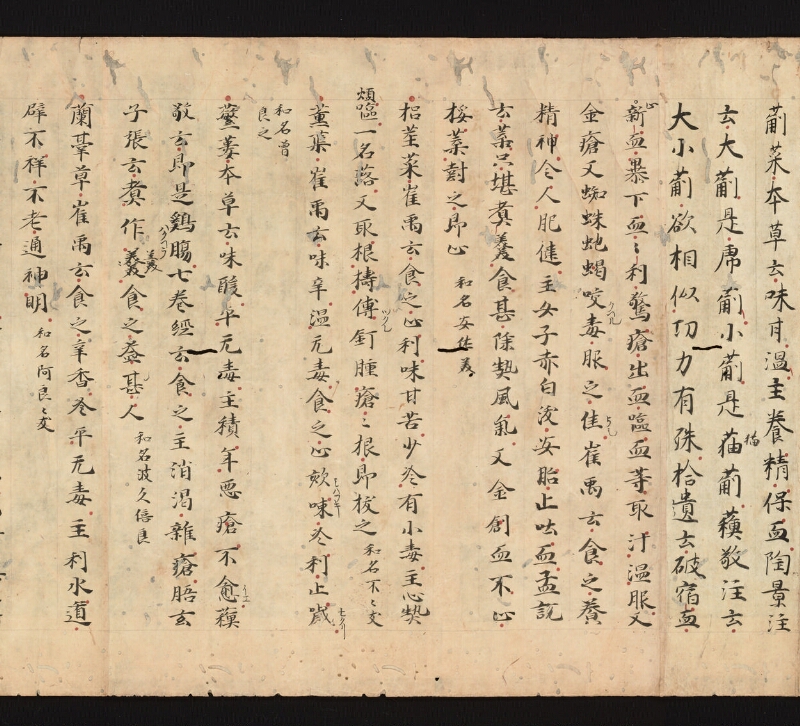 葪菜本草云味甘温主養精保血陶景注
云大葪是虎葪小葪是猫葪蘓敬注云
大小葪欲相似功力有殊拾遺云破宿血
新血暴下血〻利驚瘡出血嘔血等取汁温服又
金瘡又蜘蛛虵蝎咬毒服之佳崔禹云食之養
精神令人肥健主女子赤白沃安胎止吐血孟詵
云葉只堪煑羹食甚除熱風氣又金創血不止
挼葉封之即止 和名安佐美
茎菜崔禹云食之止利味甘苦少冷有小毒主心熱
煩嘔一名落又取根擣傅釘腫瘡〻根即拔之 和名不〻支
薫蕖崔禹云味辛温无毒食之止欬嗽冷利止
和名曽良之
蘩蔞本草云味酸平无毒主積年悪瘡不愈蘓
敬云即是鷄腸七卷經云食之主消渇雜瘡膳玄
子張云煑作羹食之益甚人 和名波久倍良
蘭草崔禹云食之辛香冷平无毒主利水道
辟不祥不老通神明 和名阿良〻支